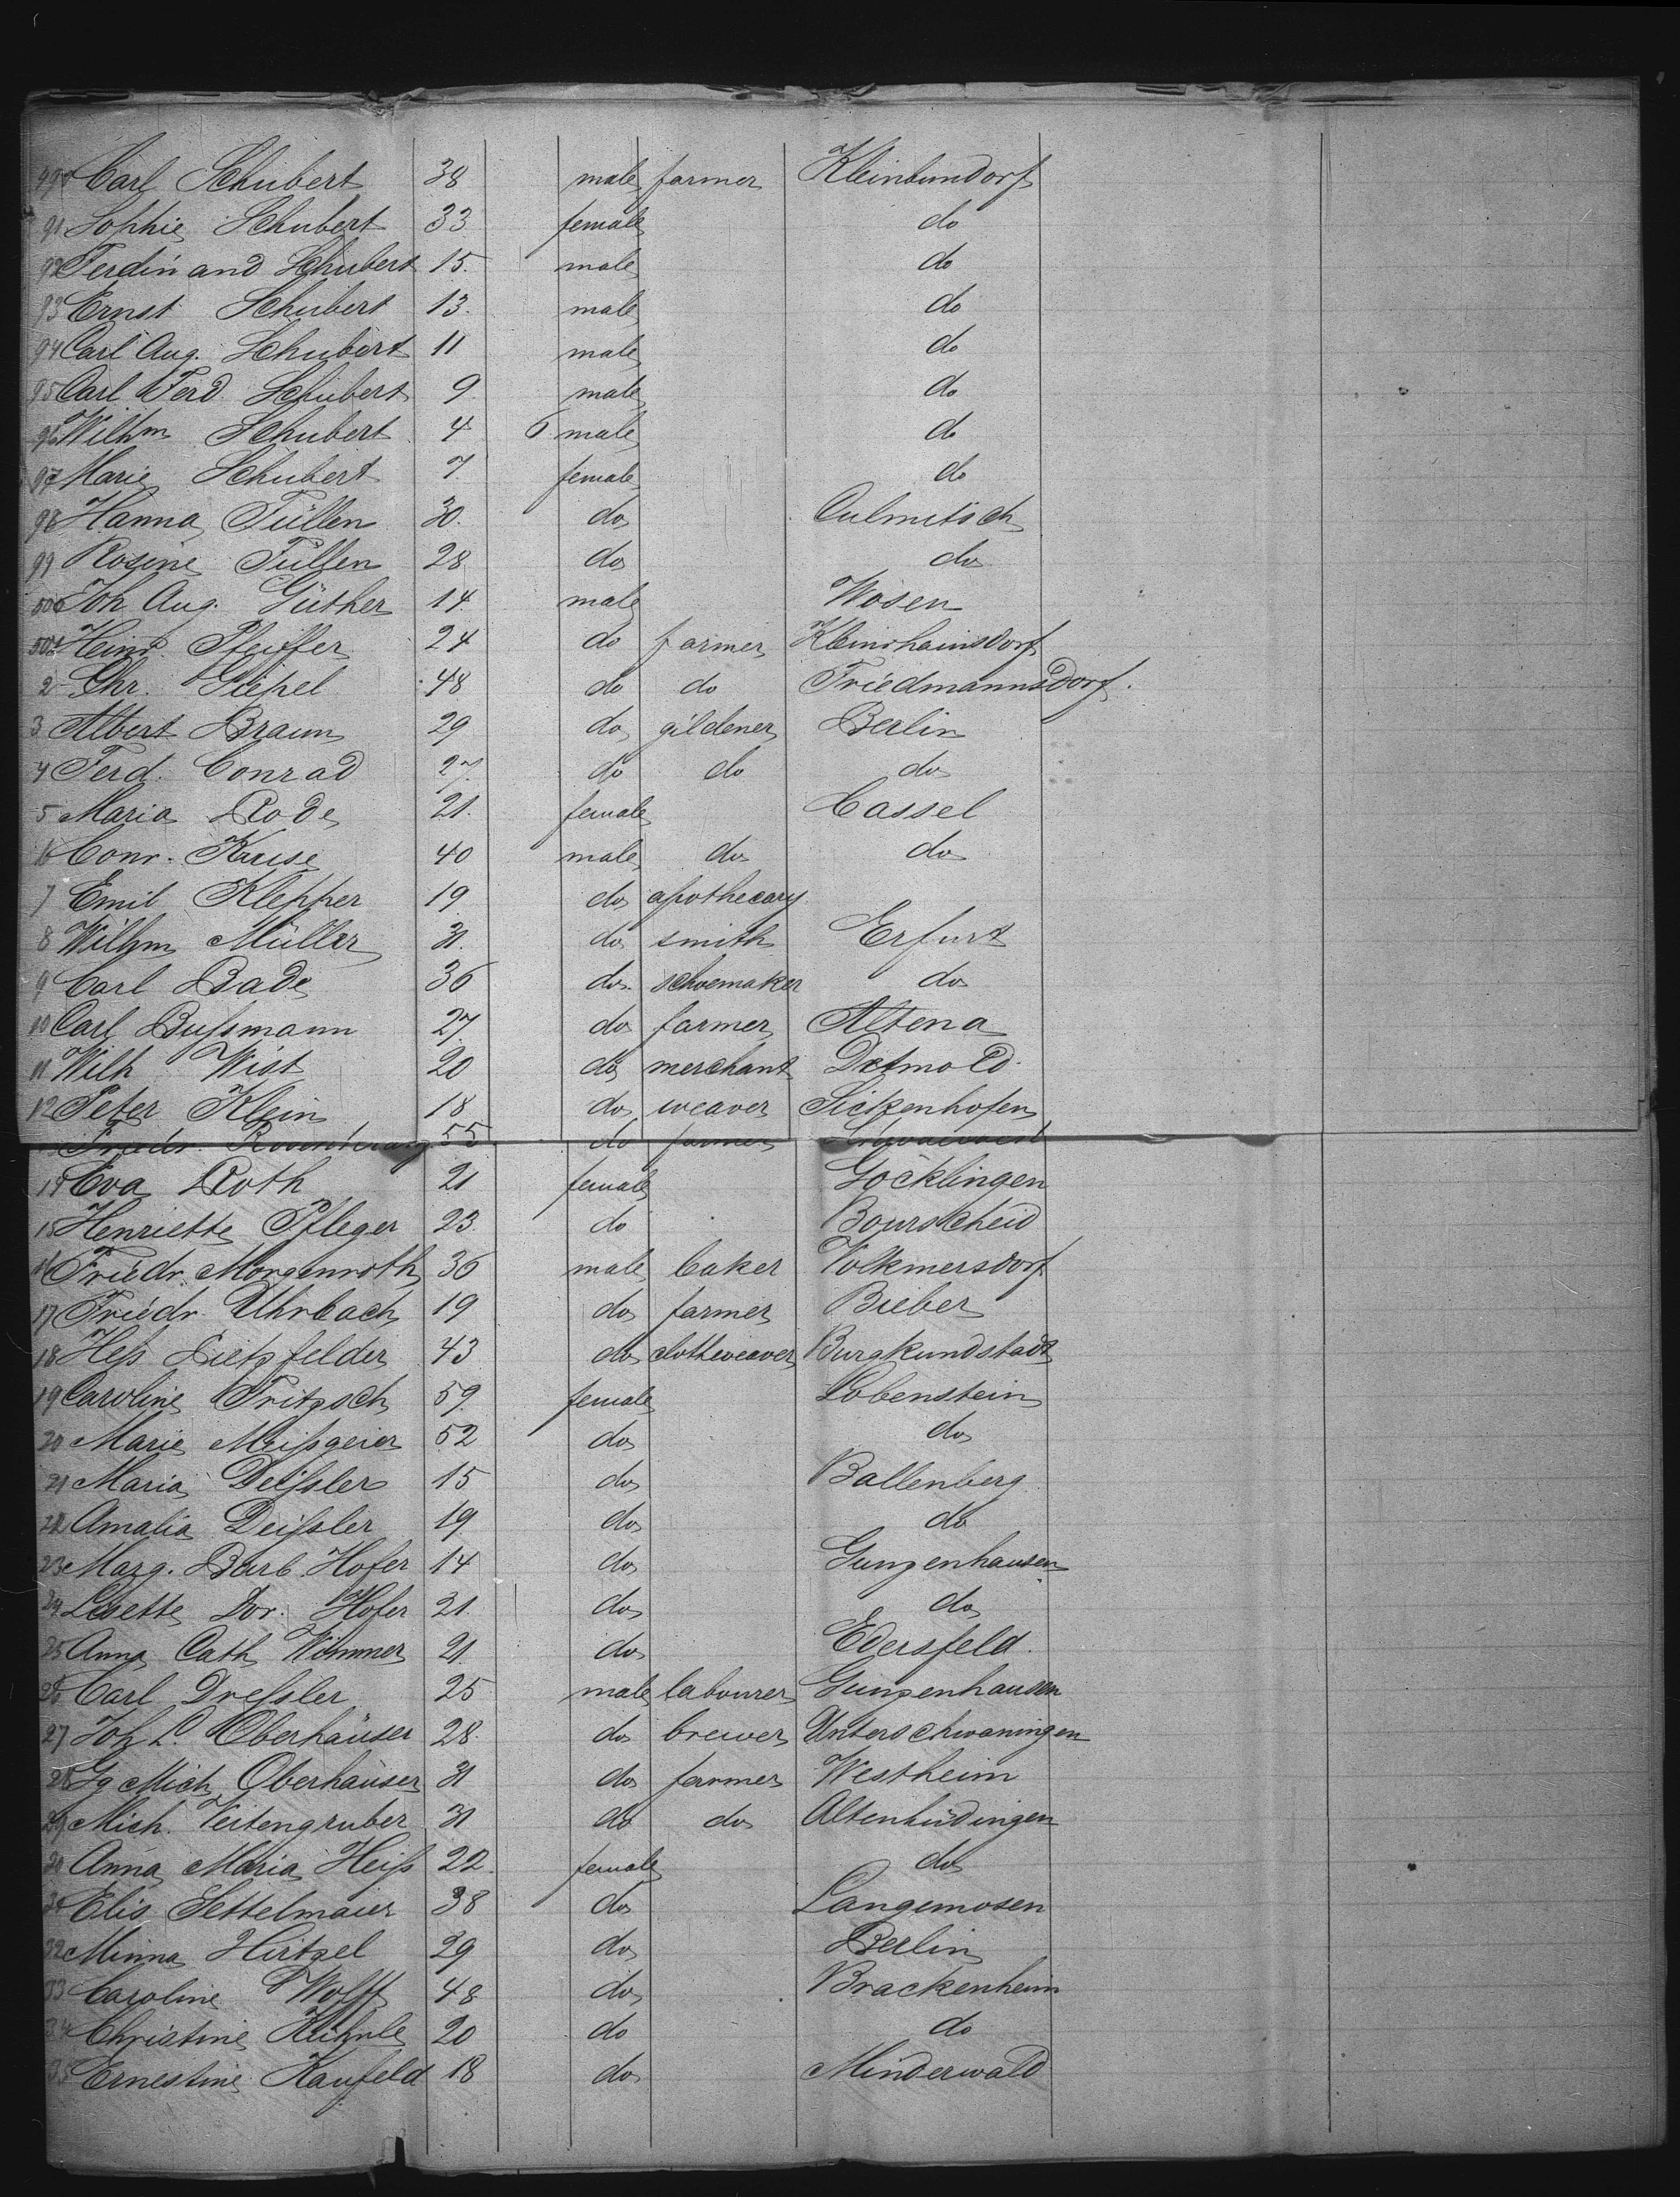 490 Carl Schubert 38 male farmer Kleinbundorf
91 Sophie Schubert 33 female do
92 Ferdinand Schubert 15. male do
93 Ernst Schubert 13. male do
94 Carl Aug. Schubert 11 male do
95 Carl Ferd. Schubert 9 male do
96 Wilhm Schubert 4 6 male do
97 Marie Schubert 7. female do
98 Hanna Füllen 30. do Culmitsch
99 Rosine Füllen 28 do do
500 Joh Aug. Güther 14 male Wosen
501 Heinr. Pfeiffer 24 do farmer Kleinrhainsdorf
2 Chr. Giepel 48 do do Friedmannsdorf.
3 Albert Braun 29 do gildener Berlin
4 Ferd. Conrad 27. do do do
5 Maria Rode 21. female Cassel
6 Conr. Kruse 40 male do do
7 Emil Klepper 19 do apothecary.
8 Wilhm Müller 31. do smith Erfurt
9 Carl Bade 36 do. schoemaker do
10 Carl Bußmann 27. do farmer Altena
11 Wilh Wist 20 do merchant Detmold.
12 Peter Klein 18 do weaver Sickenhofen
Friedr. 55 do farmer
14 Eva Roth 21 female Göcklingen
15 Henriette Pfleger 23. do Bourscheid
16 Friedr. Morgenroth 36 male baker Volkmersdorf
17 Friedr. Uhrbach 19 do farmer Bieber
18 Heß Dietzfelder 43 do clothweaver Burgkundstadt
19 Caroline Fritzsch 59. female Lobenstein
20 Marie Meißgeier 52 do do
21 Maria Deißler 15 do Ballenberg.
22 Amalia Deißler 19 do do
23 Marg. Barb. Hofer 14 do Gunzenhausen
24 Lisette Dor. Hofer 21. do do
25 Anna Cath Wimmer 21. do Edersfeld.
26 Carl Dreßler 25 male labourer Gunzenhausen
27 Joh L. Oberhäuser 28. do brewer Unterschwaningen
28 Gg Mich. Oberhäuser 31 do farmer Westheim
29 Mich. Veitengruber 31 do do Altenbüdingen
30 Anna Maria Heiß 22. female do
31 Elis. Settelmaier 38 do Langemosen
32 Minna Hirtzel 29 do Berlin
33 Caroline Wolff 48 do Brackenheim
34 Christine Kühnle 20 do do
35 Ernestine Kaufeld 18 do Minderwald